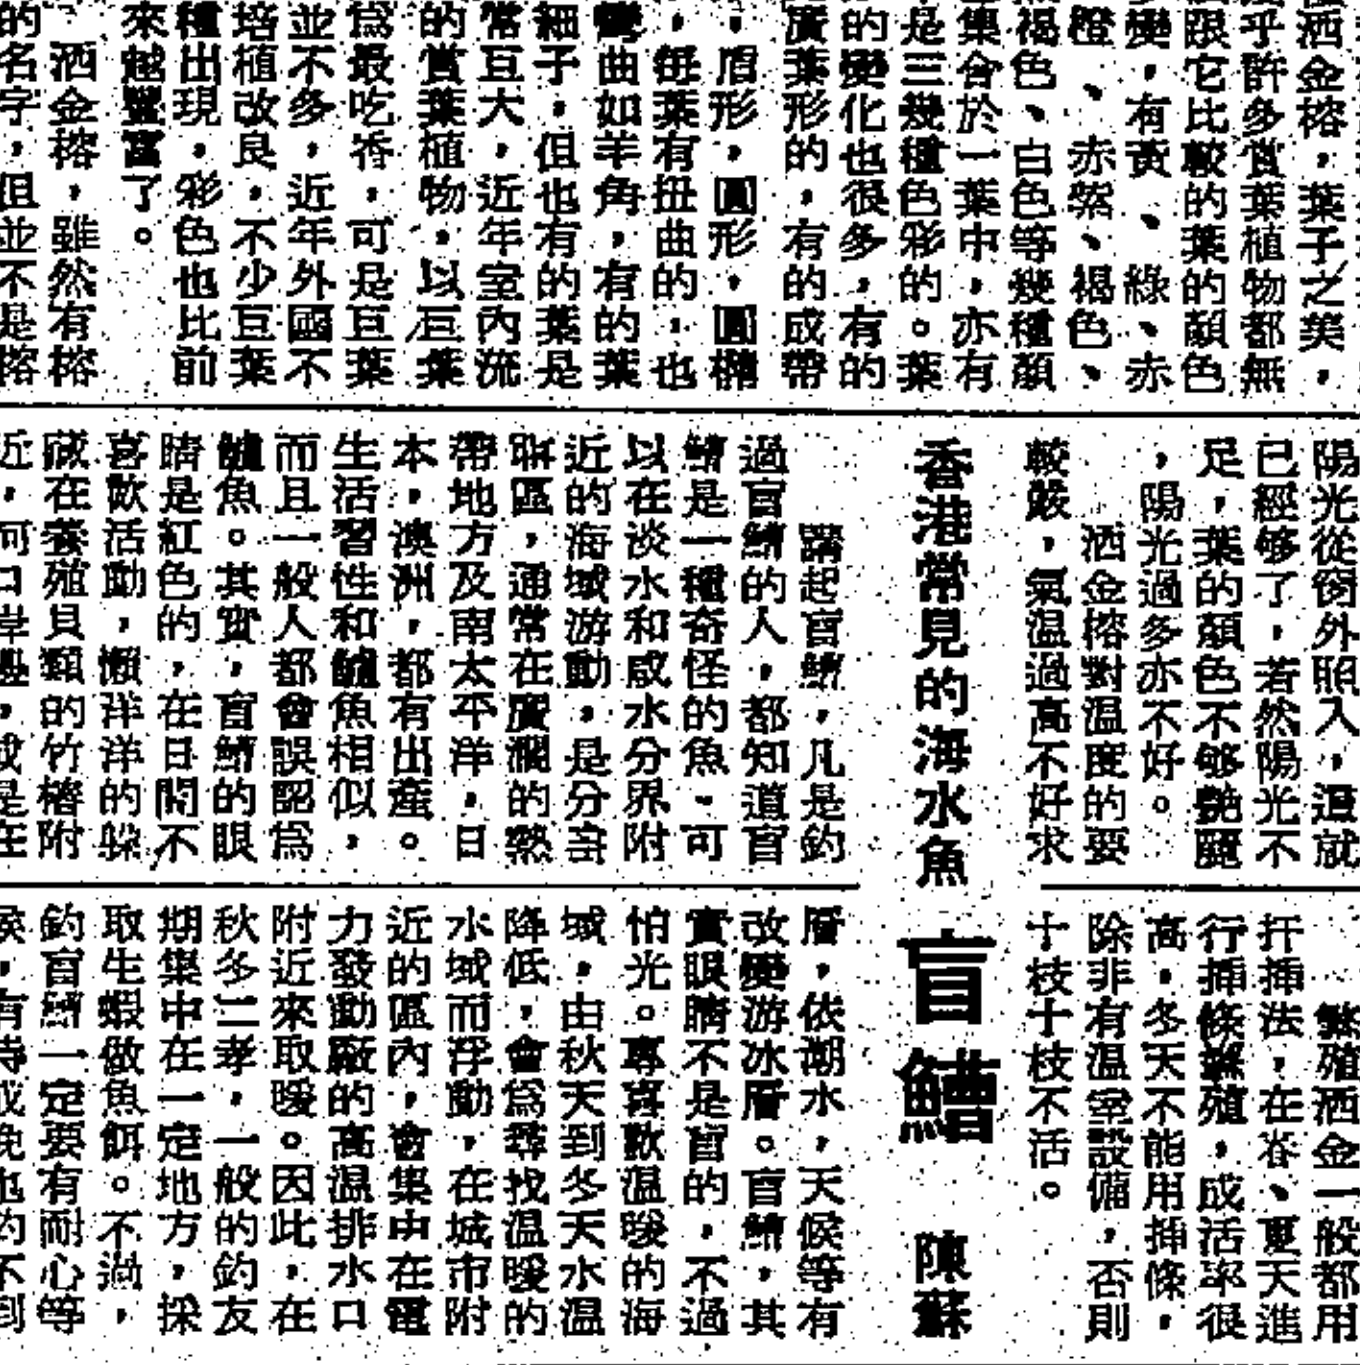 洒金榕,葉子之美,
乎許多賞葉植物都無
限它比較的葉的顏色
變,有黃、綠、赤
橙、赤紫、褐色、
褐色、白色等幾種顏
集合於一葉中,亦有
是三幾種色彩的。葉
的變化也很多,有的
廣葉形的,有的成帶
,眉形,圓形,圓橢
,每葉有扭曲的,也
彎曲如羊角,有的葉
細子,但也有的葉是
常亘大,近年室內流
的賞葉植物,以亘葉
爲最吃香,可是亘葉
並不多,近年外國不
培植改良,不少亘葉
種出現,彩色也比前
來越豐富了。
洒金榕,雖然有榕
的名字,但並不是榕
陽光從窗外照入,還就
已經够了,若然陽光不
足,葉的顏色不够艷麗
,陽光過多亦不好。
洒金榕對温度的要
較嚴,氣温過高不好求
繁殖洒金一般都用
扦插法,在春、夏天進
行插條繁殖,成活率很
高,冬天不能用插條,
除非有温室設備,否則
十枝十枝不活。
香港常見的海水魚
盲鰽
陳蘇
講起盲鰽,凡是釣
過盲鰽的人,都知道盲
鰽是一種奇怪的魚,可
以在淡水和咸水分界附
近的海域游動,是分奇
咪區,通常在廣濶的熱
帶地方及南太平洋,日
本,澳洲,都有出產。
生活習性和鱸魚相似,
而且一般人都會誤認爲
鱸魚。其實,盲鰽的眼
睛是紅色的,在日間不
喜歡活動,懶洋洋的躲
藏在養殖貝類的竹樁附
近,河口岸邊,或是在
層,依潮水,天候等有
改變游冰層。盲鰽,其
實眼睛不是盲的,不過
怕光。專喜歡温暖的海
域,由秋天到冬天水温
降低,會爲尋找温暖的
水域而浮動,在城市附
近的區內,會集中在電
力發動廠的高温排水口
附近來取暖。因此,在
秋冬二季,一般的釣友
期集中在一定地方,採
取生蝦做魚餌。不過,
釣盲鰽一定要有耐心等
候,有時或晚也釣不到